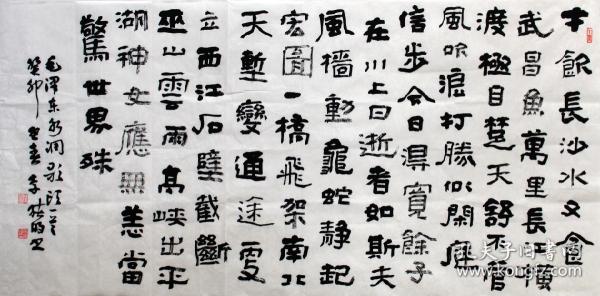 才飲長沙水又食
武昌魚萬里長江橫
渡極目楚天舒不管
風吹浪打勝似閑庭
信步今日得寬餘子
在川上曰逝者如斯夫
風檣動龜蛇靜起
宏圖一橋飛架南北
天塹變通途更
立西江石壁截斷
巫山雲雨高峽出平
湖神女應無恙當
驚世界殊
毛澤东水调歌頭
癸卯
孔夫子旧书网
www.kongfz.com